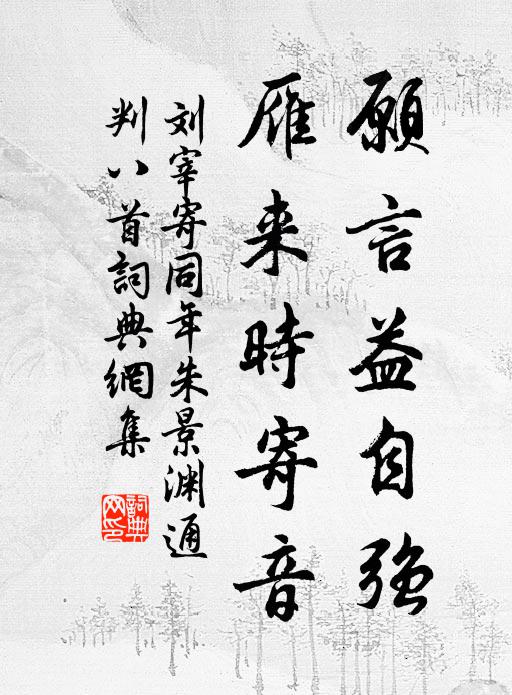 願言益自強
雁来時寄音
刘宰寄同年朱景渊通
判八首詞典網集
詞典網印